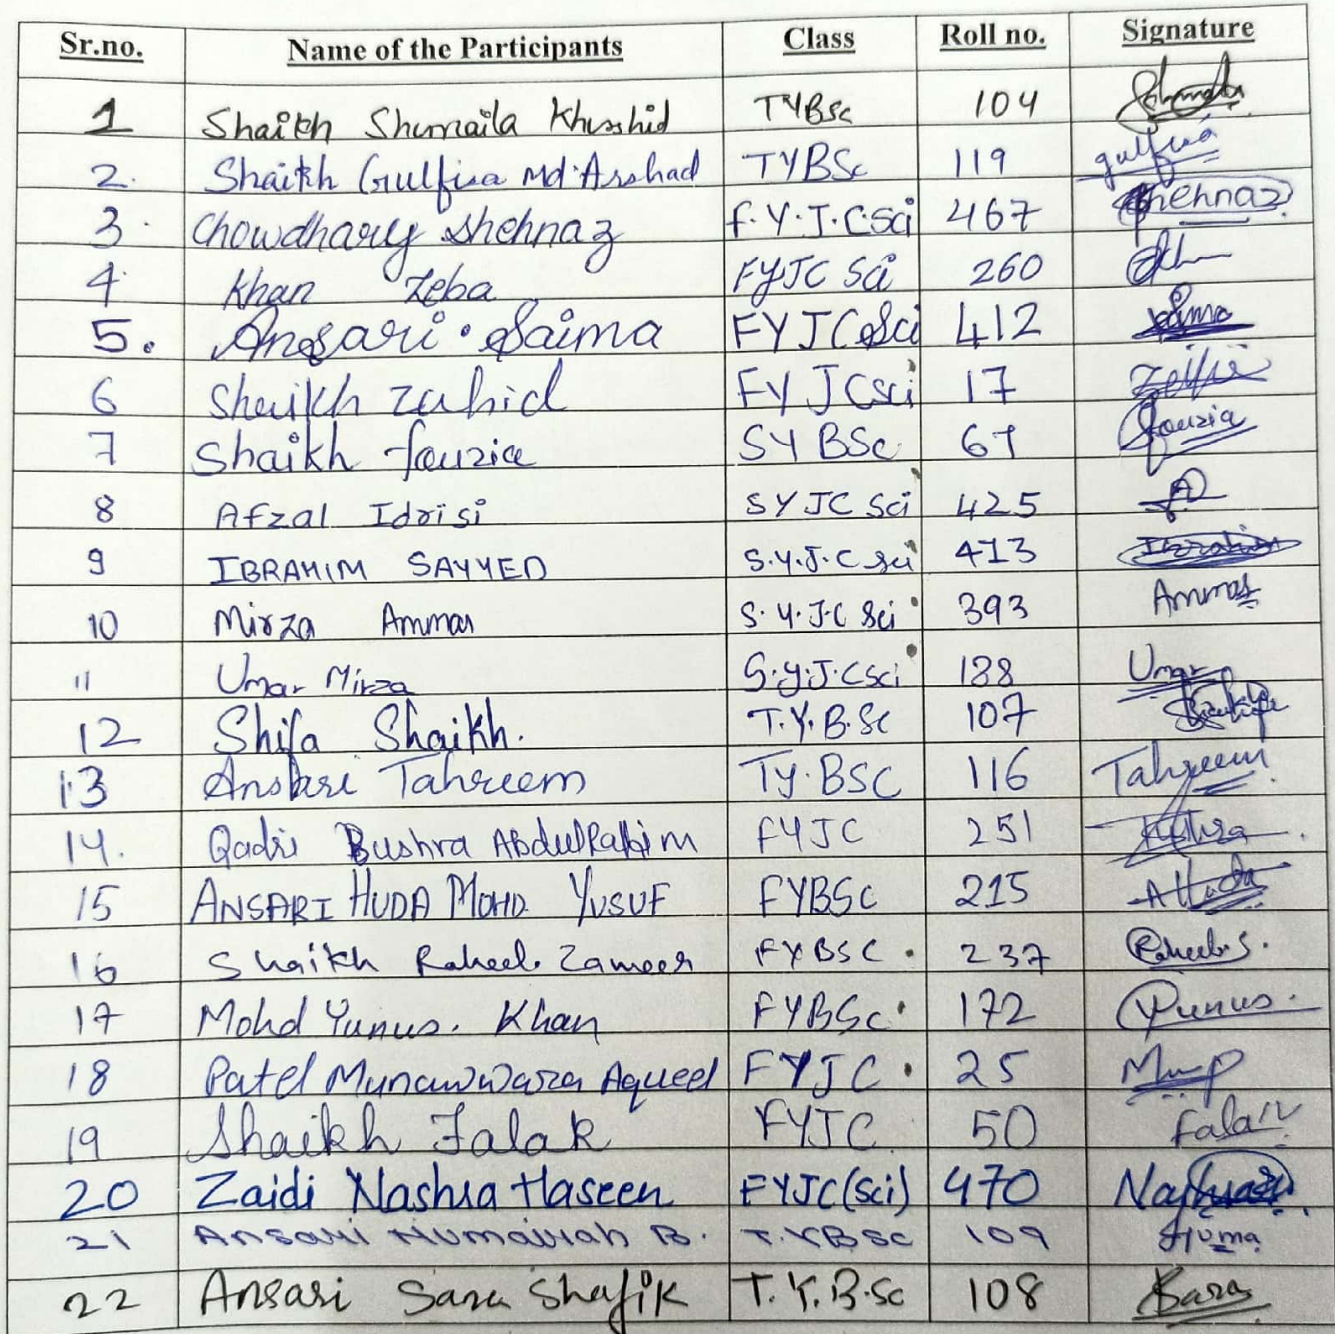 Sr.no. Name of the Participants Class Roll no. Signature
1 Shaikh Shumaila Khurshid TYBSc 104
2. Shaikh Gulfisa Md. Arshad TYBSc 119 gulfisa
3. Chowdhary Shehnaz F.Y.J.C Sci 467 Shehnaz
4. Khan Zeba FYJC Sci 260
5. Ansari. Saima FYJC Sci 412
6 Shaikh Zahid FYJC sci 17
7 Shaikh fouzia SYBSc 67 fouzia
8 Afzal Idrisi SYJC Sci 425
9 IBRAHIM SAYYED S.Y.J.C Sci 413 Ibrahim
10 Mirza Ammar S.Y.J.C Sci 393 Ammar
11 Umar Mirza S.y.J.C sci 188 Umar
12 Shifa Shaikh. T.Y.B.Sc 107
13 Ansari Tahreem TY.BSC 116 Tahreem
14. Qadri Bushra AbdulRahim FYJC 251
15 ANSARI HUDA MOHD. YUSUF FYBSc 215 AHuda
16 Shaikh Raheel. Zameer FYBSC. 237 Raheel.S.
17 Mohd Yunus. Khan FYBSc. 172 Yunus.
18 Patel Munawwara Aqueel FYJC. 25
19 Shaikh Falak FYJC 50 Falak
20 Zaidi Nashra Haseen FYJC(Sci) 470
21 Ansari Humairah B. T.YBSc 109 Huma
22 Ansari Sara Shafik T.Y.B.Sc 108 Sara